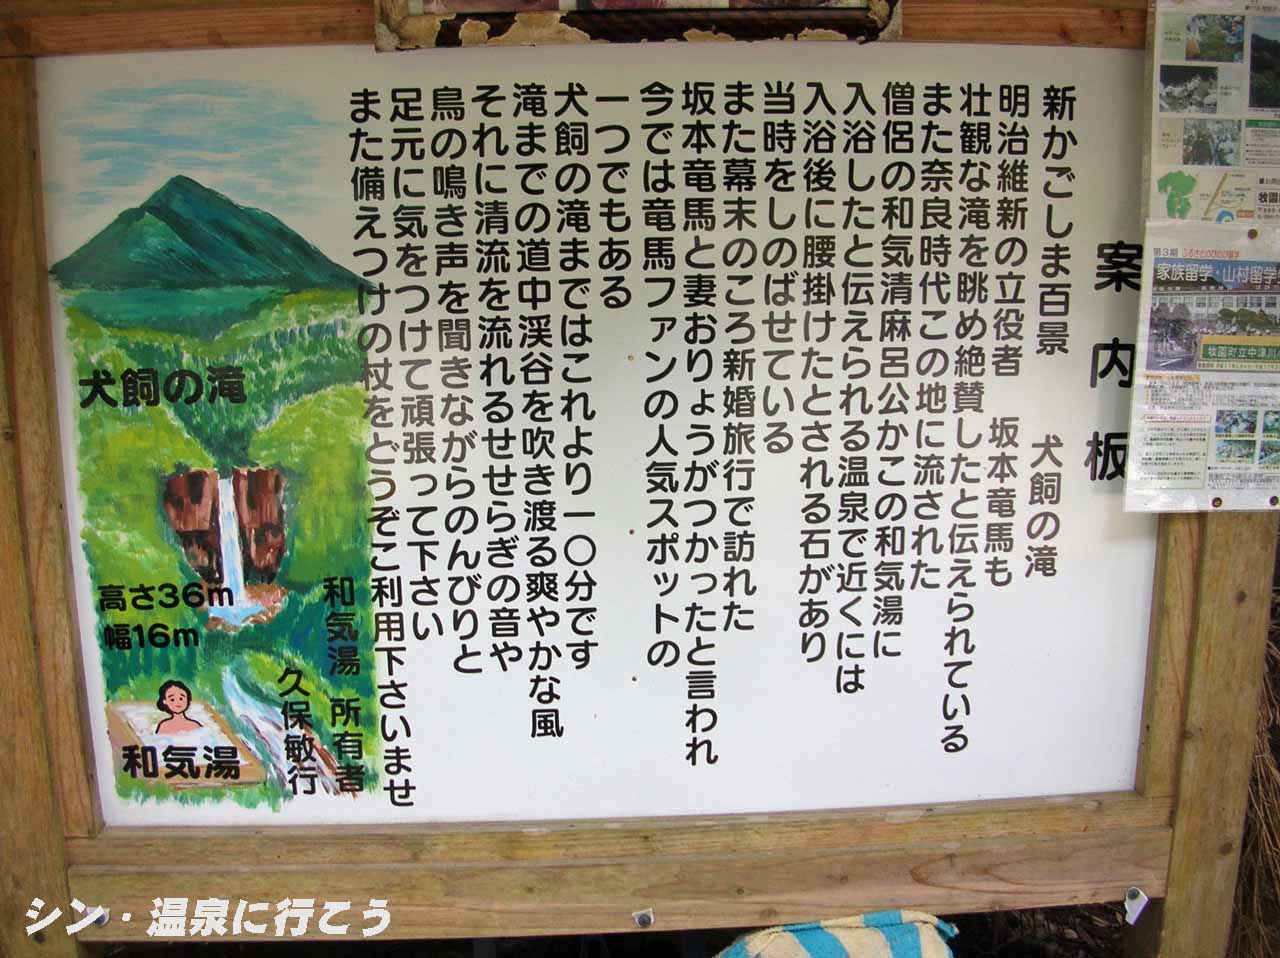 案内板
新かごしま百景　犬飼の滝
明治維新の立役者　坂本竜馬も
壮観な滝を眺め絶賛したと伝えられている
また奈良時代この地に流された
僧侶の和気清麻呂公かこの和気湯に
入浴したと伝えられる温泉で近くには
入浴後に腰掛けたとされる石があり
当時をしのばせている
また幕末のころ新婚旅行で訪れた
坂本竜馬と妻おりょうがつかったと言われ
今では竜馬ファンの人気スポットの
一つでもある
犬飼の滝まではこれより一〇分です
滝までの道中渓谷を吹き渡る爽やかな風
それに清流を流れるせせらぎの音や
鳥の鳴き声を聞きながらのんびりと
足元に気をつけて頑張って下さい
また備えつけの杖をどうぞご利用下さいませ
和気湯　所有者
久保敏行
犬飼の滝
高さ36m
幅16m
和気湯
第3期
家族留学・山村留学
牧園町立中津川
シン・温泉に行こう